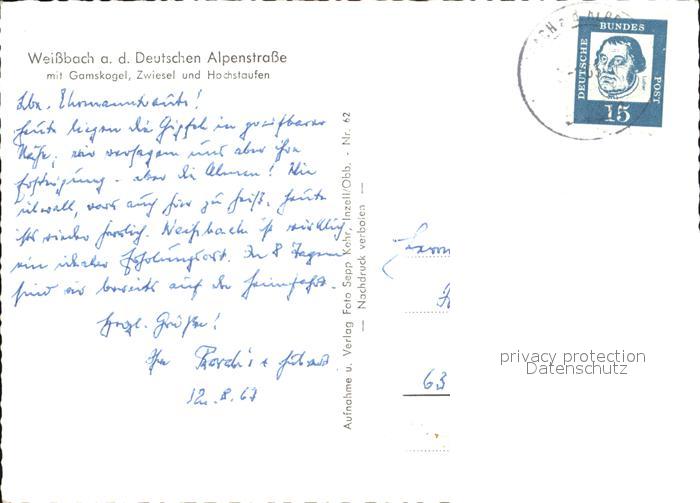 Weißbach a. d. Deutschen Alpenstraße
mit Gamskogel, Zwiesel und Hochstaufen
Lbe.
Heute liegen die Gipfel in greifbarer
Nähe, wir versagen uns aber ihre
Besteigung - aber die Almen! Wie
überall, war's auch hier zu heiß, heute
ist's wieder herrlich. Weißbach ist wirklich
ein idealer Erholungsort. In 8 Tagen
sind wir bereits auf der Heimfahrt.
Herzl. Grüße!
Ihre
12.8.63
Aufnahme u. Verlag Foto Sepp Kohr, Inzell/Obb. - Nr. 62
— Nachdruck verboten —
DEUTSCHE
BUNDES
POST
Luther
15
63
privacy protection
Datenschutz